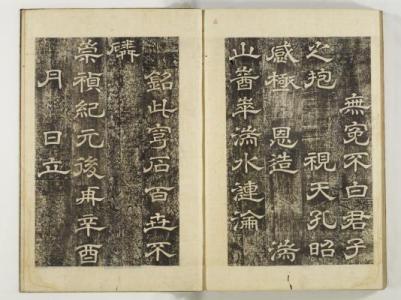 無寃不白君子
之抱 視天孔昭
感極 恩造
山嶜崒 水漣淪
銘此穹石百世不
磷
崇禎紀元後再辛酉
月 日立